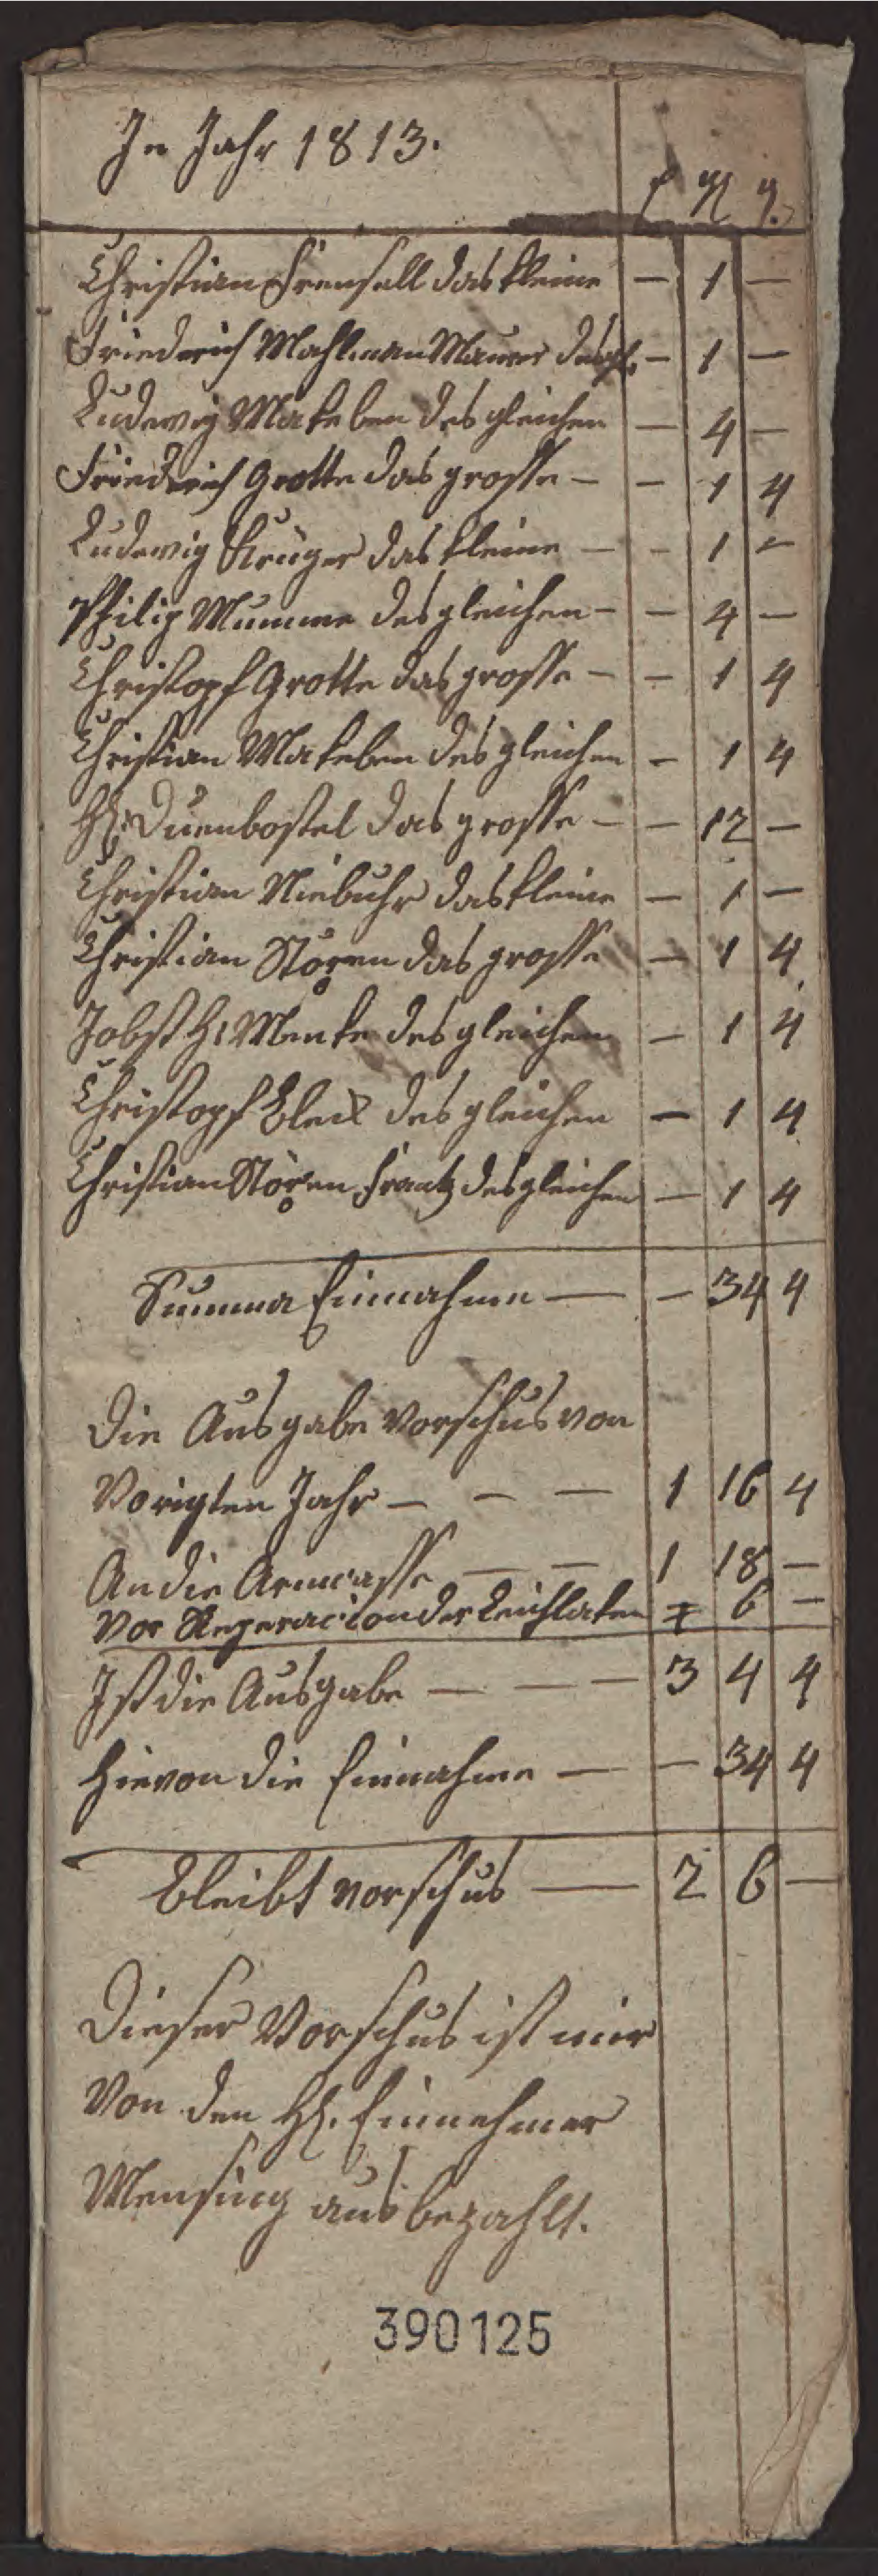 In Jahr 1813.
Christian Frensell das kleine — 1 —
Friedrich Mahlman Maurer desgl. — 1 —
Ludewig Makeben des gleichen — 4 —
Friedrich Grotte das grosse — — 1 4
Ludewig Krüger das kleine — — 1 —
Philip Mumme des gleichen — — 4 —
Christopf Grotte das grosse — — 1 4
Christian Makeben des gleichen — 1 4
H. Duenbostel das grosse — — 12 —
Christian Niebuhr das kleine — 1 —
Christian Stören das grosse — 1 4
Jobst H: Menke des gleichen — 1 4
Christopf Bleck des gleichen — 1 4
Christian Stören Frantz des gleichen — 1 4
Summa Einnahme — — 34 4
Die Ausgabe Vorschus von
Vorigten Jahr — — — 1 16 4
An die Armcasse — — 1 18 —
Vor Reperacion der Leichlaken 6 —
Ist die Ausgabe — — — 3 4 4
Hievon die Einnahme — — 34 4
Bleibt vorschus — 2 6 —
Dieser Vorschus ist mir
Von den H. Einnehmer
Mensing aus bezahlt.
390125